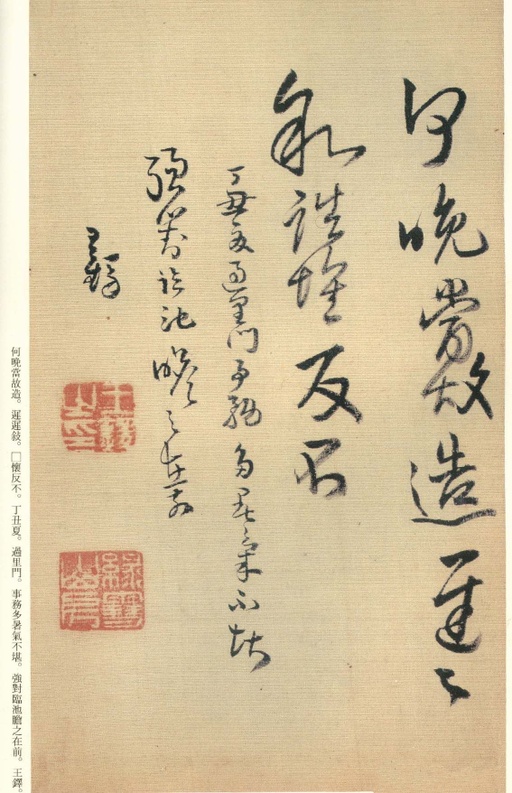 何晚當故造遲〻
敘誰懷反不
丁丑夏過里門事務多暑氣不堪
強對臨池瞻之在前
王鐸
王鐸之印
何晚當故造。遲遲敍。□懷反不。丁丑夏。過里門。事務多暑氣不堪。強對臨池瞻之在前。王鐸。